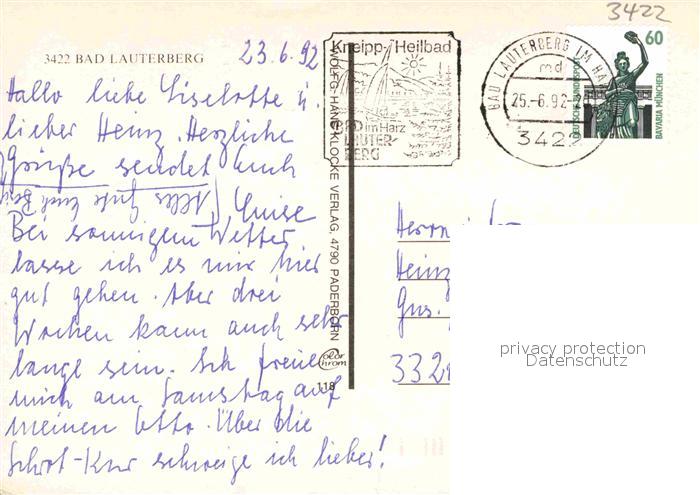 3422
3422 BAD LAUTERBERG
23.6.92
Hallo liebe Liselotte u.
lieber Heinz. Herzliche
Grüße sendet Euch
Alles Gute Euch
Luise
Bei sonnigem Wetter
lasse ich es mir hier
gut gehen. Aber drei
Wochen kann auch sehr
lange sein. Ich freue
mich am Samstag auf
meinen Otto. Über die
Schrot-Kur schweige ich lieber!
WOLFG. HANS KLOCKE VERLAG, 4790 PADERBORN
Color
chrom
118
Kneipp-Heilbad
BAD im Harz
LAUTER-
BERG
BAD LAUTERBERG IM HA
md
25.-6.92
3422
DEUTSCHE BUNDESPOST
60
BAVARIA MÜNCHEN
Herrn
Heinz
332
privacy protection
Datenschutz